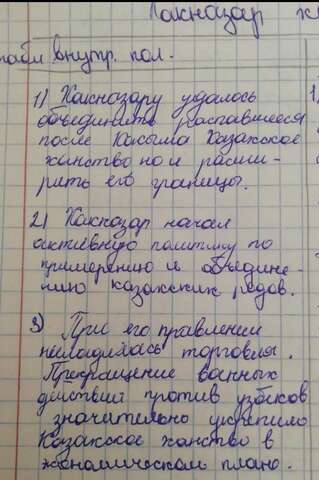 Хакназар х
внутр. пол.
1) Хакназару удалось
объединить распавшееся
после Касыма Казахское
ханство но и расши-
рить его границы.
2) Хакназар начал
активную политику по
примерению и объедине-
нию казахских родов.
3) При его правлении
наладилась торговля.
Прекращение военных
действий против узбеков
значительно укрепило
Казахское ханство в
экономическом плане.